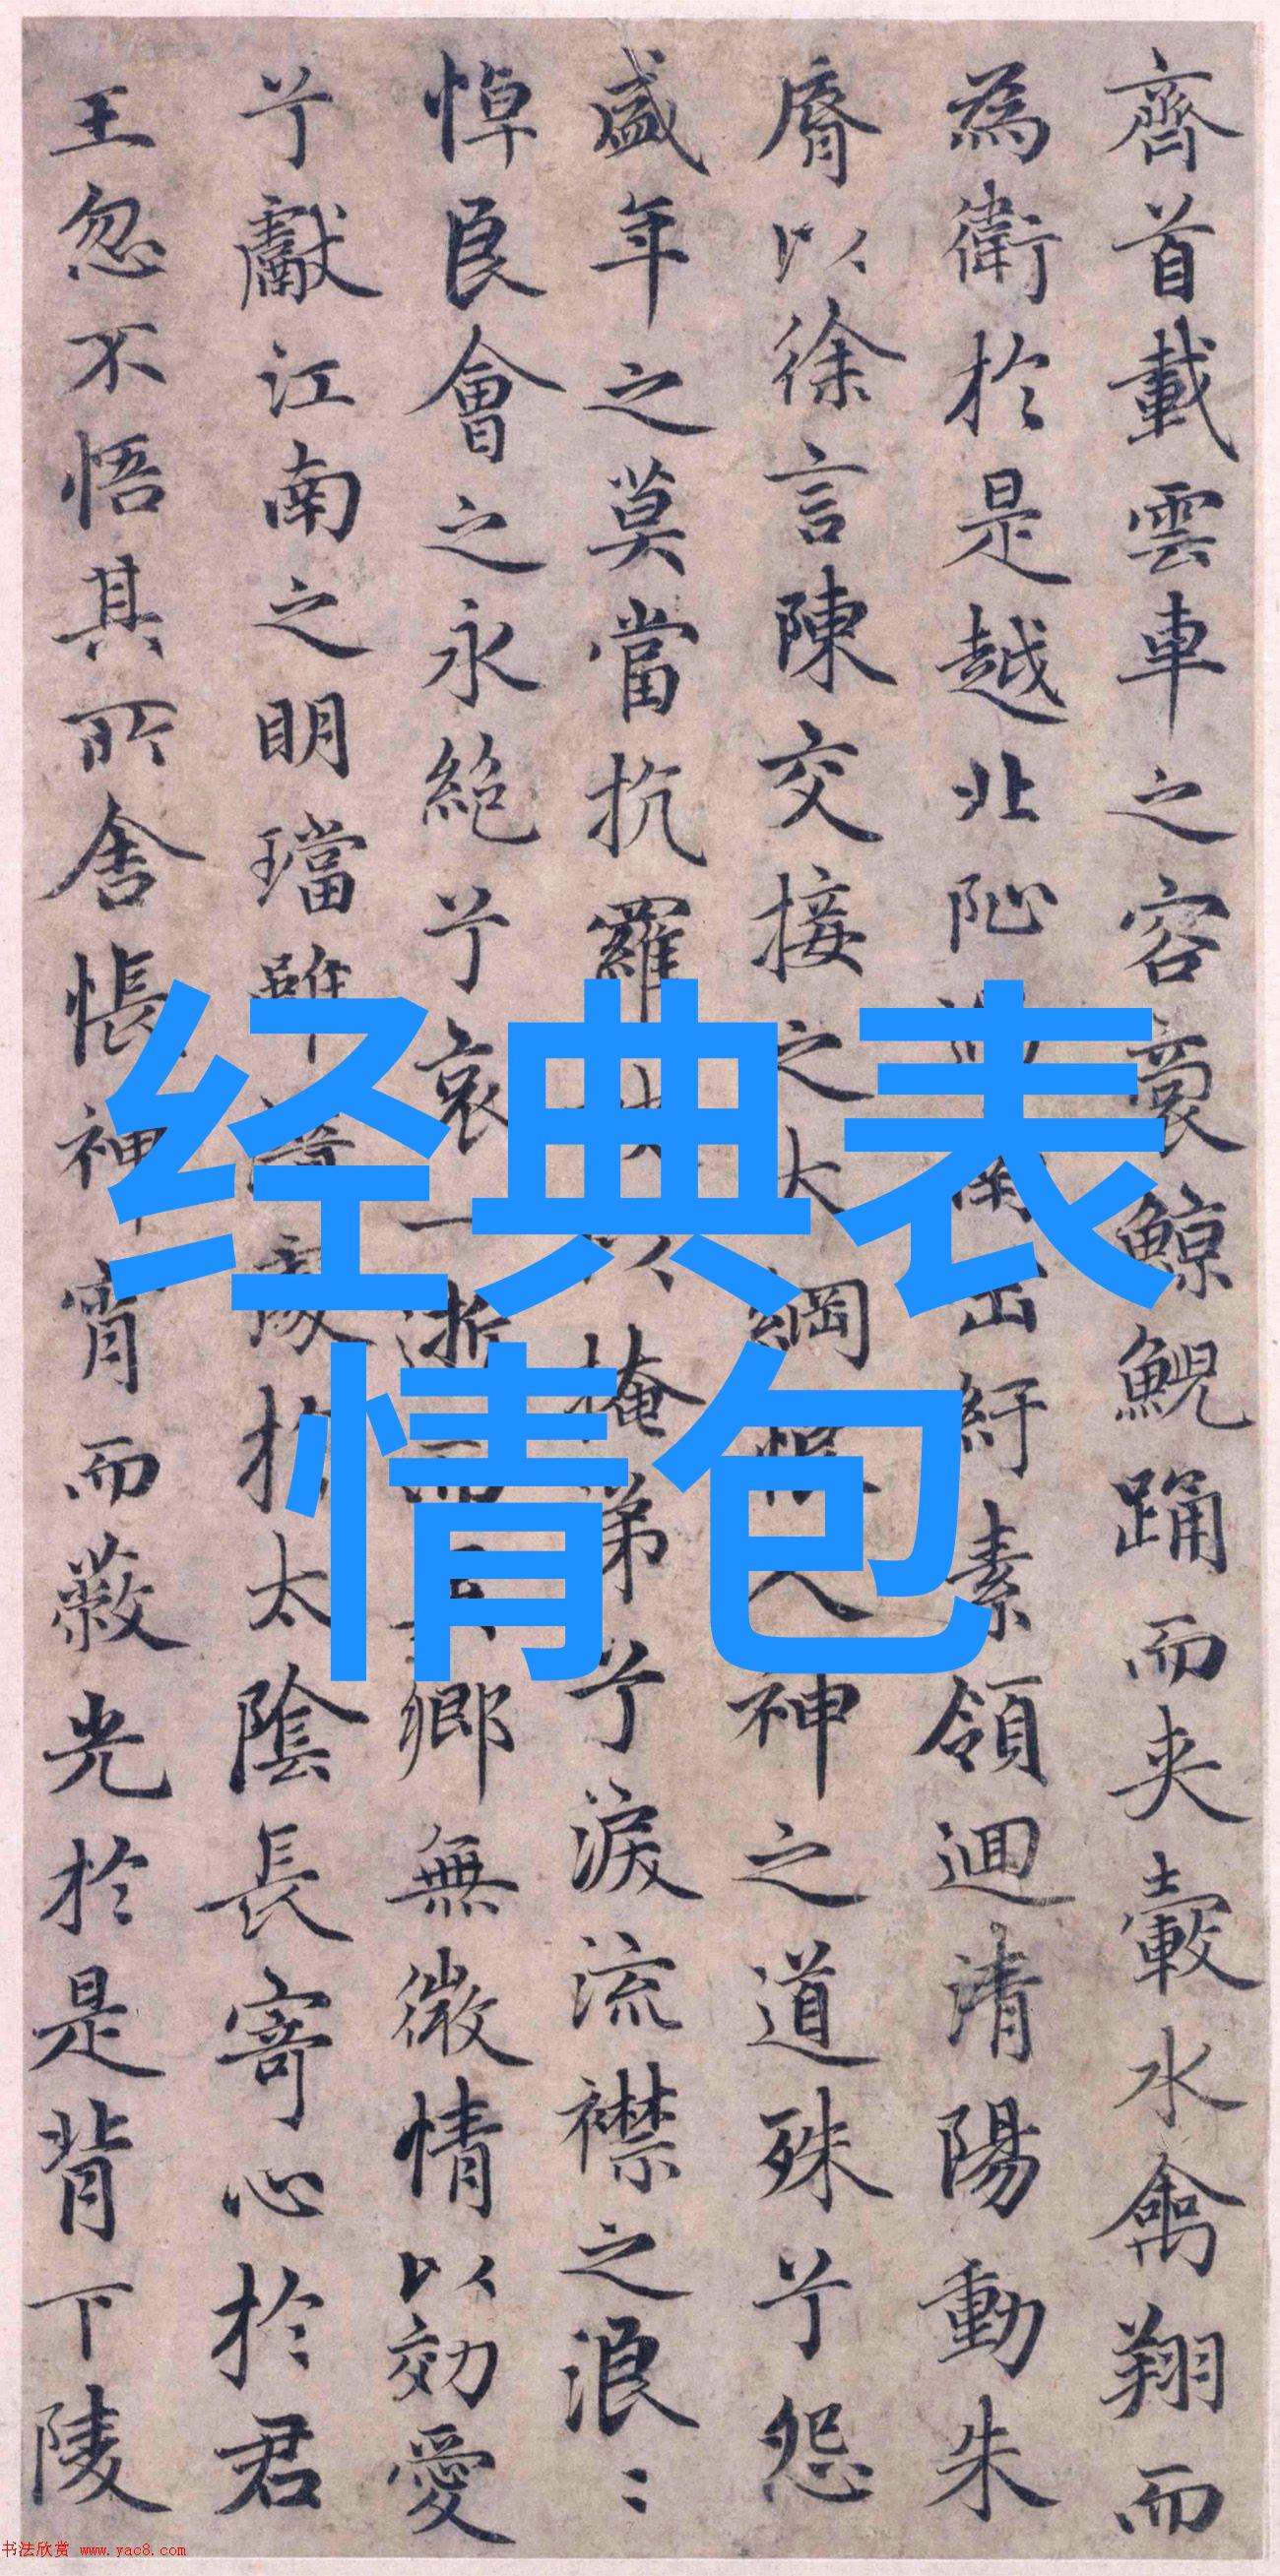 齊首載雲車之容裔鯨鯢踊而夾轂水禽翔而
為衛於是越北阯過南岡紆素領迴清陽動朱
脣以徐言陳交接之大綱恨人神之道殊兮怨
盛年之莫當抗羅袂以掩涕兮淚流襟之浪〻
悼良會之永絶兮哀一逝而異鄉無微情以効愛
兮獻江南之明璫雖潛處於太陰長寄心於君
王忽不悟其所舍悵神宵而蔽光於是背下陵
经典表
情包
书法欣赏 www.yac8.com